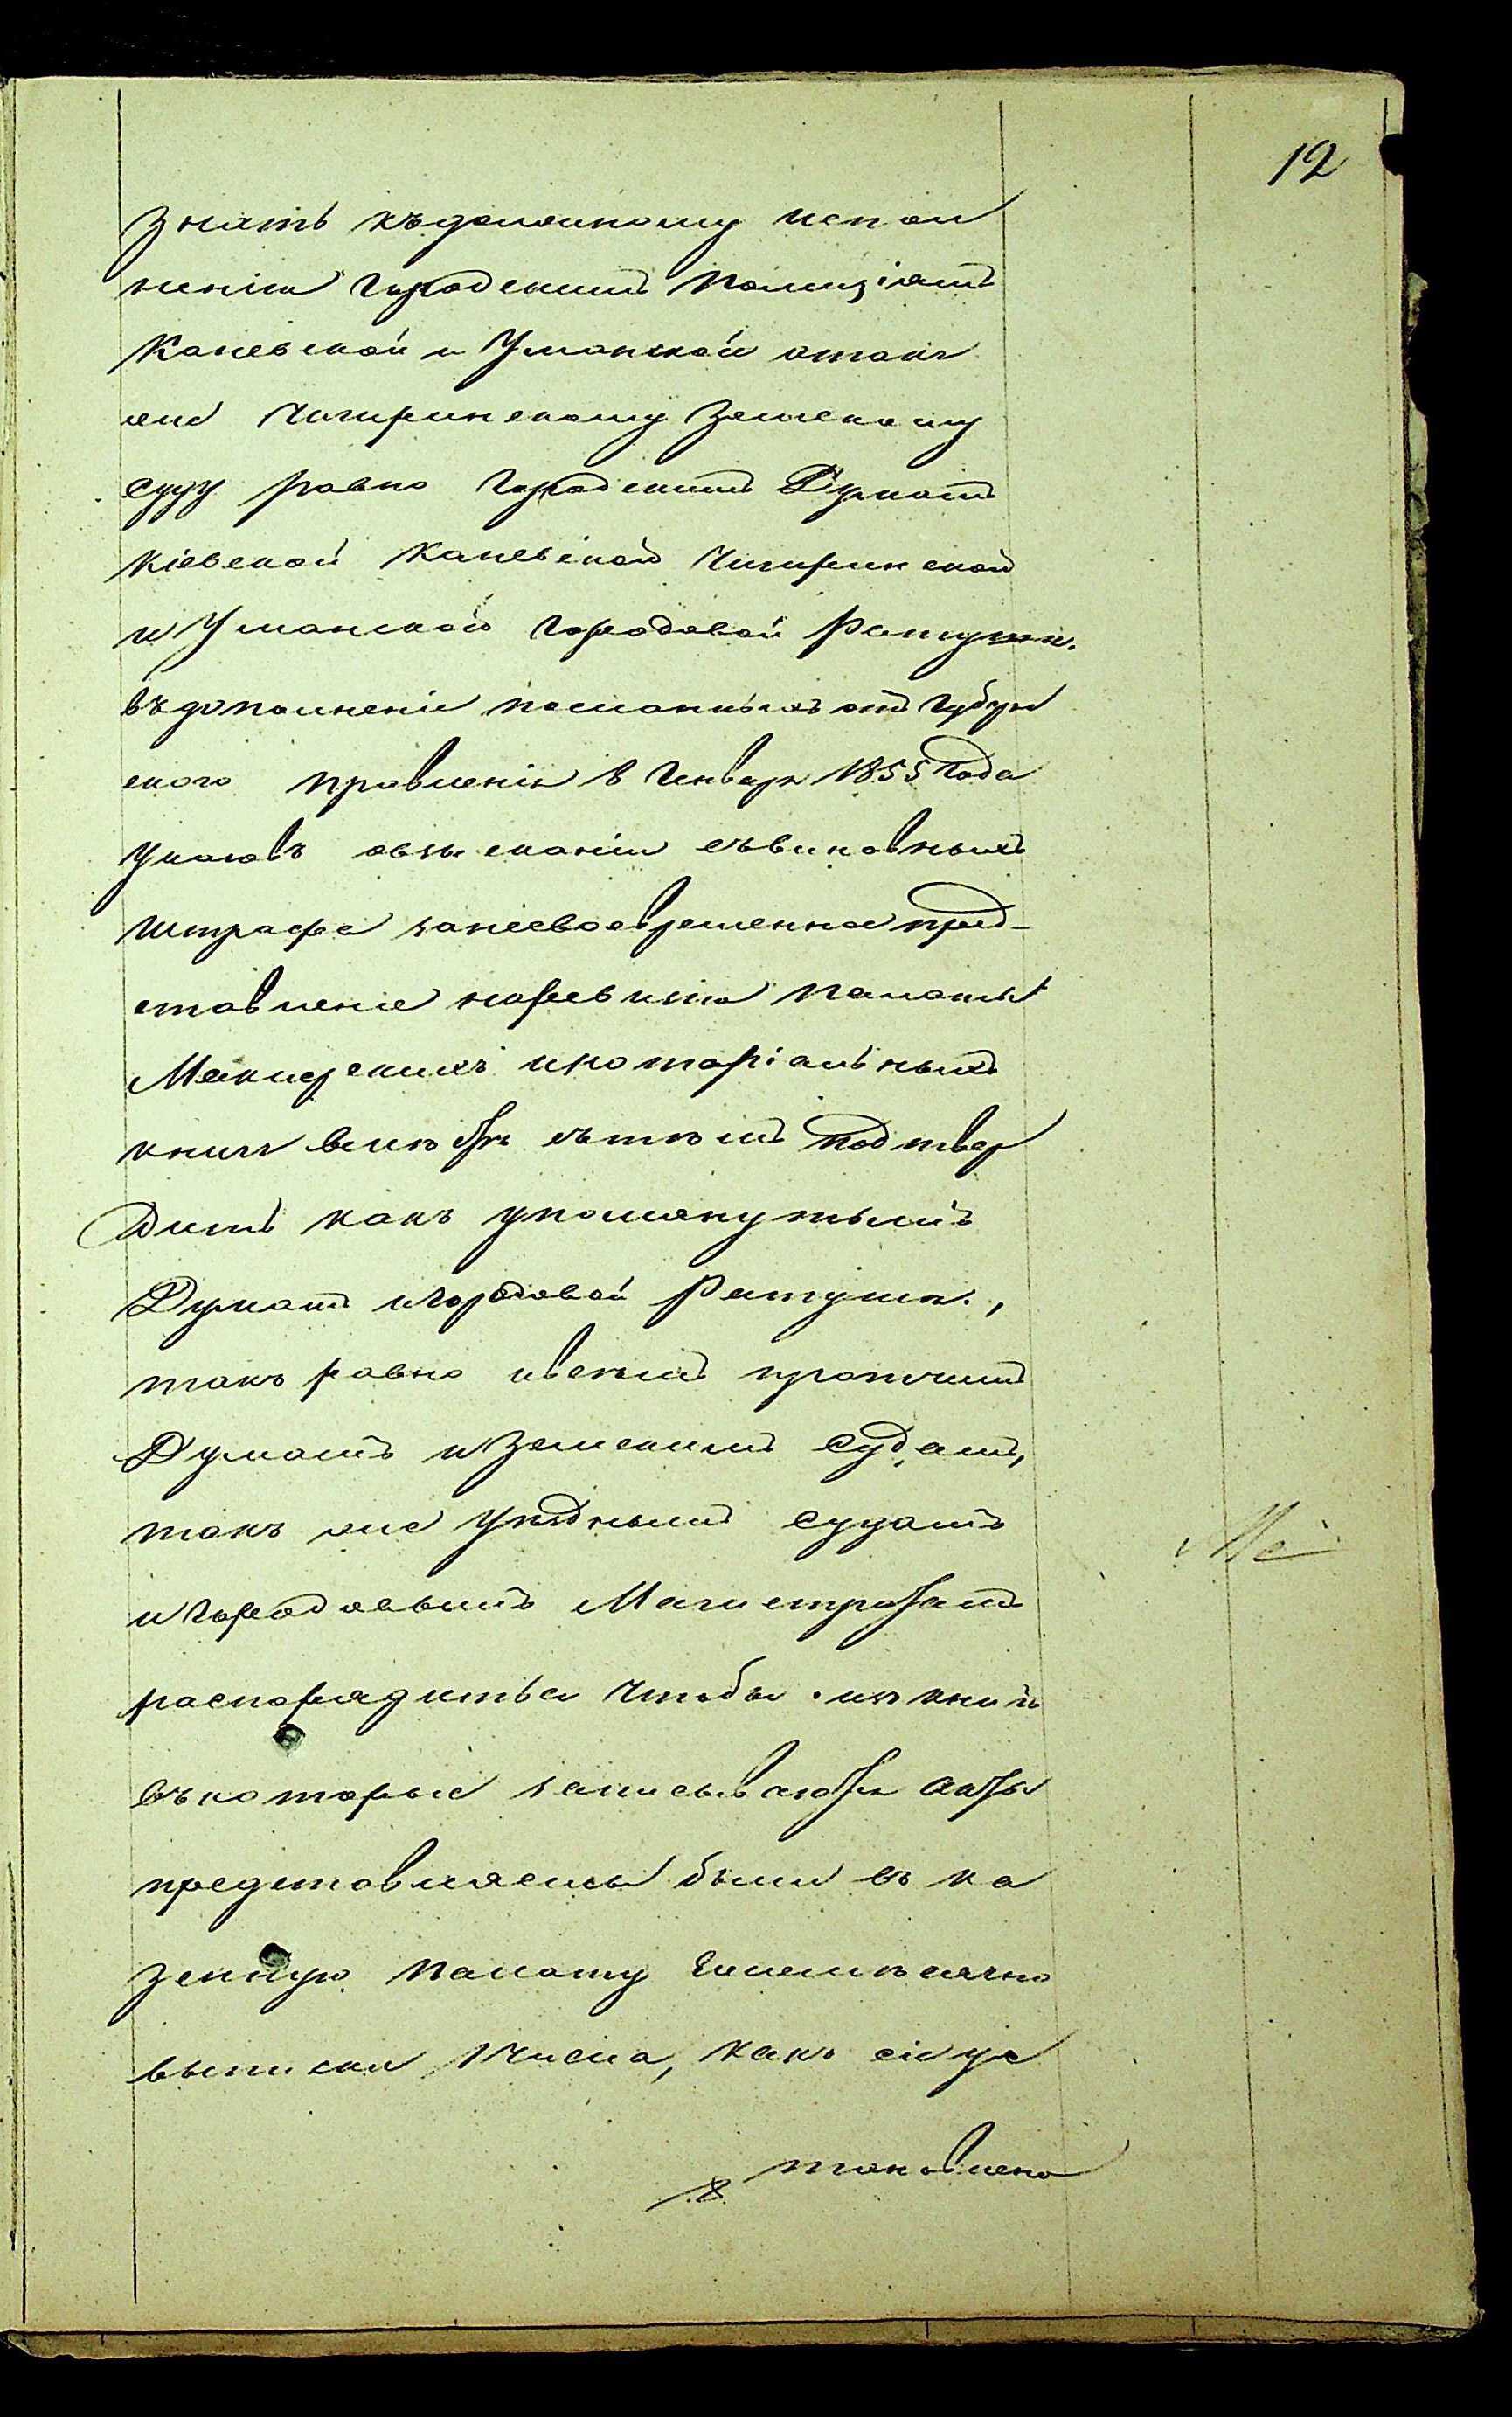 12
знать къ должному испол
ненію Городскимъ Полиціямъ
Каневской и Уманской атакъ
же Чигиринскому Земскому
суду равно Городскимъ Думамъ
Кіевской Каневской Чигиринской
и Уманской Городовой Ратуши.
въ дополненіи посланныхъ отъ Губерн
скаго Правленія в Генваре 1855 Года
указовъ овзысканіи съвиновныхъ
штрафа занесвоевременное пред-
ставленіе наревизію Палаты
Маклерскихъ инотаріальныхъ
книгъ вмѣстѣ съ тѣмъ подтвер
дить какъ упомянутымъ
Думамъ игородовой Ратуши,
такъ равно ивсѣмъ протчимъ
Думамъ и Земскимъ Судамъ,
такъ же Уѣзднымъ Судамъ
и Городовымъ Магистратамъ
распорядиться чтобы изъ книгъ
въ которые записываются акты
представляемы были въ Ка
зенную Палату Ежемѣсячно
выписки 1 Числа, какъ сіе ус
тановлено